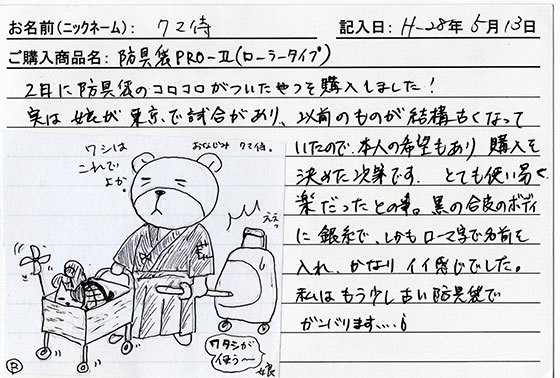 お名前(ニックネーム): クマ侍
記入日: H-28年 5月13日
ご購入商品名: 防具袋PRO-Ⅱ(ローラータイプ)
2月に防具袋のコロコロがついたやつを購入しました!
実は娘が東京で試合があり、以前のものが結構古くなって
いたので、本人の希望もあり 購入を
決めた次第です。 とても使い易く
楽だったとの事。黒の合皮のボディ
に銀糸で、しかもローマ字で名前を
入れ、かなりイイ感じでした。
私はもう少し古い防具袋で
ガンバります…。
ワシは
これで
よか。
おなじみ クマ侍。
ええっ
ワタシが
使う〜
娘
R